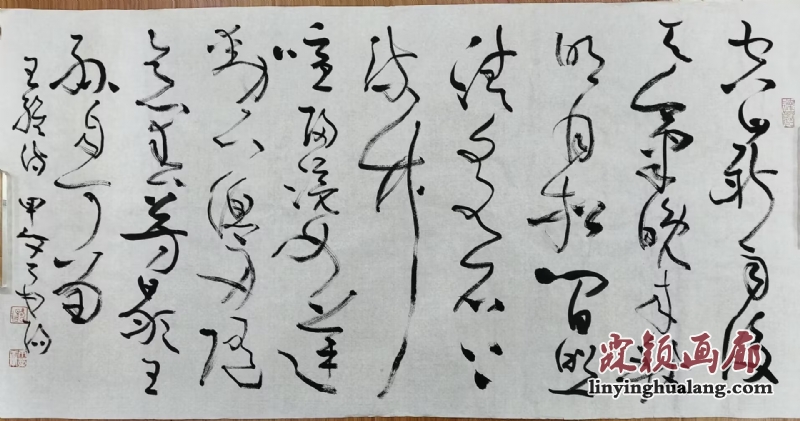 空山新雨後
天氣晚来秋
明月松間照
清泉石上
流竹
喧歸浣女蓮
動下漁舟随
意春芳歇王
孫自可留
王維詩 甲辰
霖颖画廊
linyinghualang.com